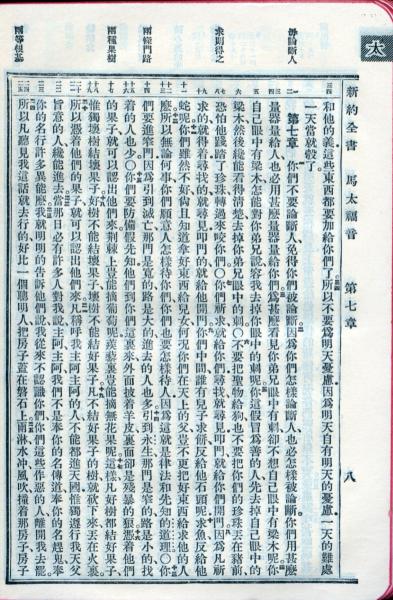 太
新約全書 馬太福音 第七章 八
毋論斷人
求則得之
兩條門路
兩種果樹
兩等根基
和他的義這些東西都要加給你們了所以不要爲明天憂慮因爲明天自有明天的憂慮一天的難處
一天當就彀了。
第七章 你們不要論斷人免得你們被論斷因爲你們怎樣論斷人也必怎樣被論斷你們用甚麽
量器量給人也必用甚麽量器量給你們爲甚麽看見你弟兄眼中有刺卻不想自己眼中有梁木呢你
自己眼中有梁木怎能對你弟兄說容我去掉你眼中的刺呢你這假冒爲善的人先去掉自己眼中的
梁木然後纔能看得清楚去掉你弟兄眼中的刺○不要把聖物給狗也不要把你們的珍珠丟在豬前
恐怕他踐踏了珍珠轉過來咬你們○你們祈求就給你們尋找就尋見叩門就給你們開門因爲凡祈
求的就得着尋找的就尋見叩門的就給他開門你們中間誰有兒子求餅反給他石頭呢求魚反給他
蛇呢你們雖然不好尙且知道拿好東西給兒女何況你們在天上的父豈不更把好東西給求他的人
麽所以無論何事你們願意人怎樣待你們你們也要怎樣待人因爲這就是律法和先知的道理○你
們要進窄門因爲引到滅亡那門是寬的路是大的進去的人也多引到永生那門是窄的路是小的找
着的人也少○你們要防備假先知他們到你們這裏來外面披着羊皮裏面卻是殘暴的狼憑着他們
的果子就可以認出他們來荆棘上豈能摘葡萄呢蒺藜裏豈能摘無花果呢這樣凡好樹都結好果子
惟獨壞樹結壞果子好樹不能結壞果子壞樹不能結好果子凡不結好果子的樹就砍下來丟在火裏
所以憑着他們的果子就可以認出他們來凡稱呼我主阿主阿的人不能都進天國惟獨遵行我天父
旨意的人纔能進去當那日必有許多人對我說主阿主阿我們不是奉你的名傳道奉你的名趕鬼奉
你的名行許多異能麽我就明明的告訴他們說我從來不認識你們你們這些作惡的人離開我去罷。
所以凡聽見我這話就去行的好比一個聰明人把房子蓋在磐石上雨淋水沖風吹撞着那房子房子